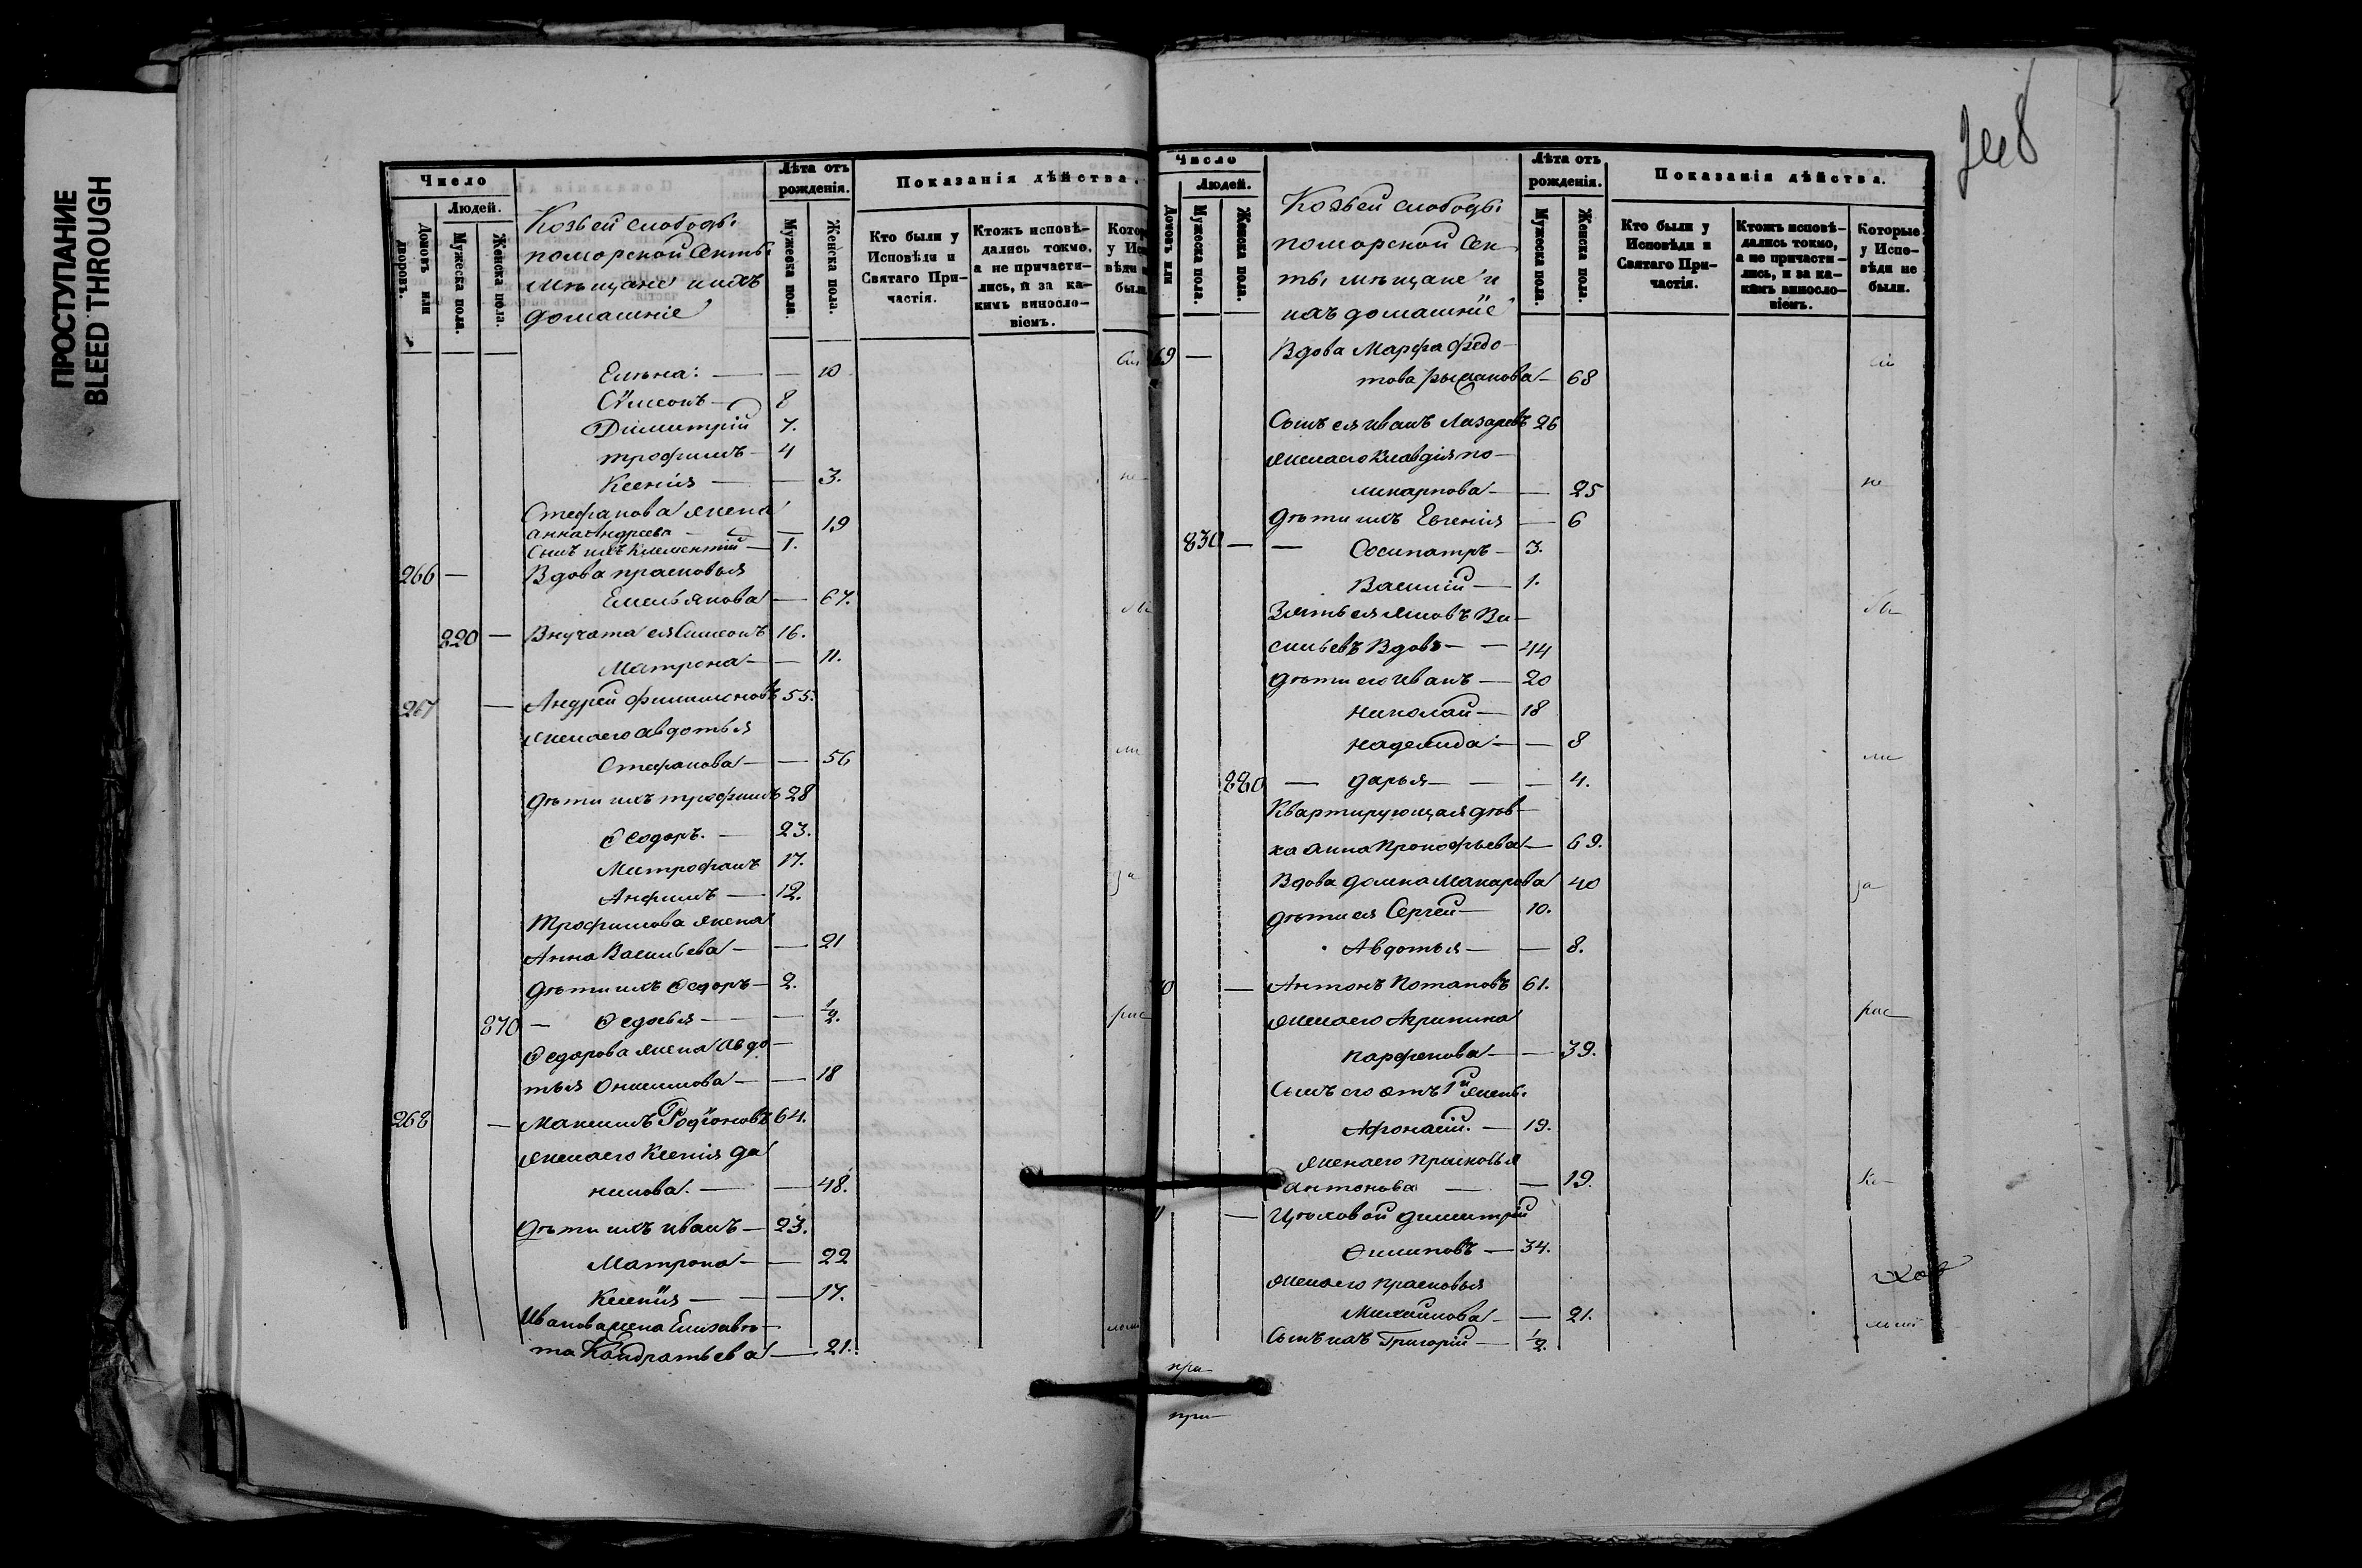 ПРОСТУПАНИЕ
BLEED THROUGH
Число
Людей.
Домовъ или дворовъ.
Мужеска пола.
Женска пола.
Козьей слободы
поморской секты
мѣщане и ихъ
домашніе
Лѣта отъ рожденія.
Мужеска пола.
Женска пола.
Показанія дѣйства.
Кто были у Исповѣди и Святаго Причастія.
Ктожъ исповѣдались токмо, а не причастились, и за какимъ винословіемъ.
Елена: — — 10
Сѵмеонъ — 8
Димитрій 7.
Трофимъ — 4
Ксенія — — 3.
не
Стефанова жена
Анна Андреева — — 19
Сынъ ихъ Климентій — 1.
266 — Вдова Прасковья
Емельянова — 67.
820 — Внучата ея Симеонъ 16.
Матрона — — 11.
267 — Андрей Филимоновъ 55.
жена его Авдотья
Стефанова — — 56
ли
дѣти ихъ Трофимъ 28
Ѳеодоръ. — 23.
Митрофанъ 17.
за
Анфимъ — 12.
Трофимова жена
Анна Васильева — — 21
дѣти ихъ Ѳедоръ — 2.
870 — Ѳедосья — — 1/2.
рас
Ѳедорова жена Авдо-
тья Онисимова — — 18
268 — Максимъ Родіоновъ 64.
жена его Ксенія Да
нилова. — — 48.
дѣти ихъ Иванъ — 23.
Матрона — — 22
Ксенія — — 17.
Иванова жена Елизавѣ-
та Кондратьева — 21.
Число
Людей.
Домовъ или
Мужеска пола.
Женска пола.
Козьей слободы
поморской сек-
ты мѣщане и
ихъ домашніе
Лѣта отъ рожденія.
Мужеска пола.
Женска пола.
Показанія дѣйства.
Кто были у Исповѣди и Святаго Причастія.
Ктожъ исповѣдались токмо, а не причастились, и за какимъ винословіемъ.
Которые у Исповѣди не были.
69 — Вдова Марфа Ѳедо-
това — 68
Сынъ ея Иванъ Лазаревъ 26
жена его Клавдія По-
ликарпова — — 25
не
дѣти ихъ Евгенія — 6
830 — — Сосипатръ — 3.
Василій — 1.
Зять ея Яковъ Ва-
бы
сильевъ Вдовъ — — 44
дѣти его Иванъ — 20
Николай — 18
Надежда — — 8
ли
880 — Дарья — — 4.
Квартирующая дѣв-
ка Анна Прокофьева — 69.
Вдова Домна Макарова 40
за
дѣти ея Сергей — 10.
Авдотья — — 8.
70 — Антонъ Потаповъ 61.
жена его Агрипина
рас
Парфенова — — 39.
Сынъ его отъ 1й жены
Афонасій. — 19.
жена его Прасковья
Антонова — — 19.
— Цѣховой Димитрій
— 34.
жена его Прасковья
Михайлова — — 21.
Сынъ ихъ Григорій — 1/2.
при
при